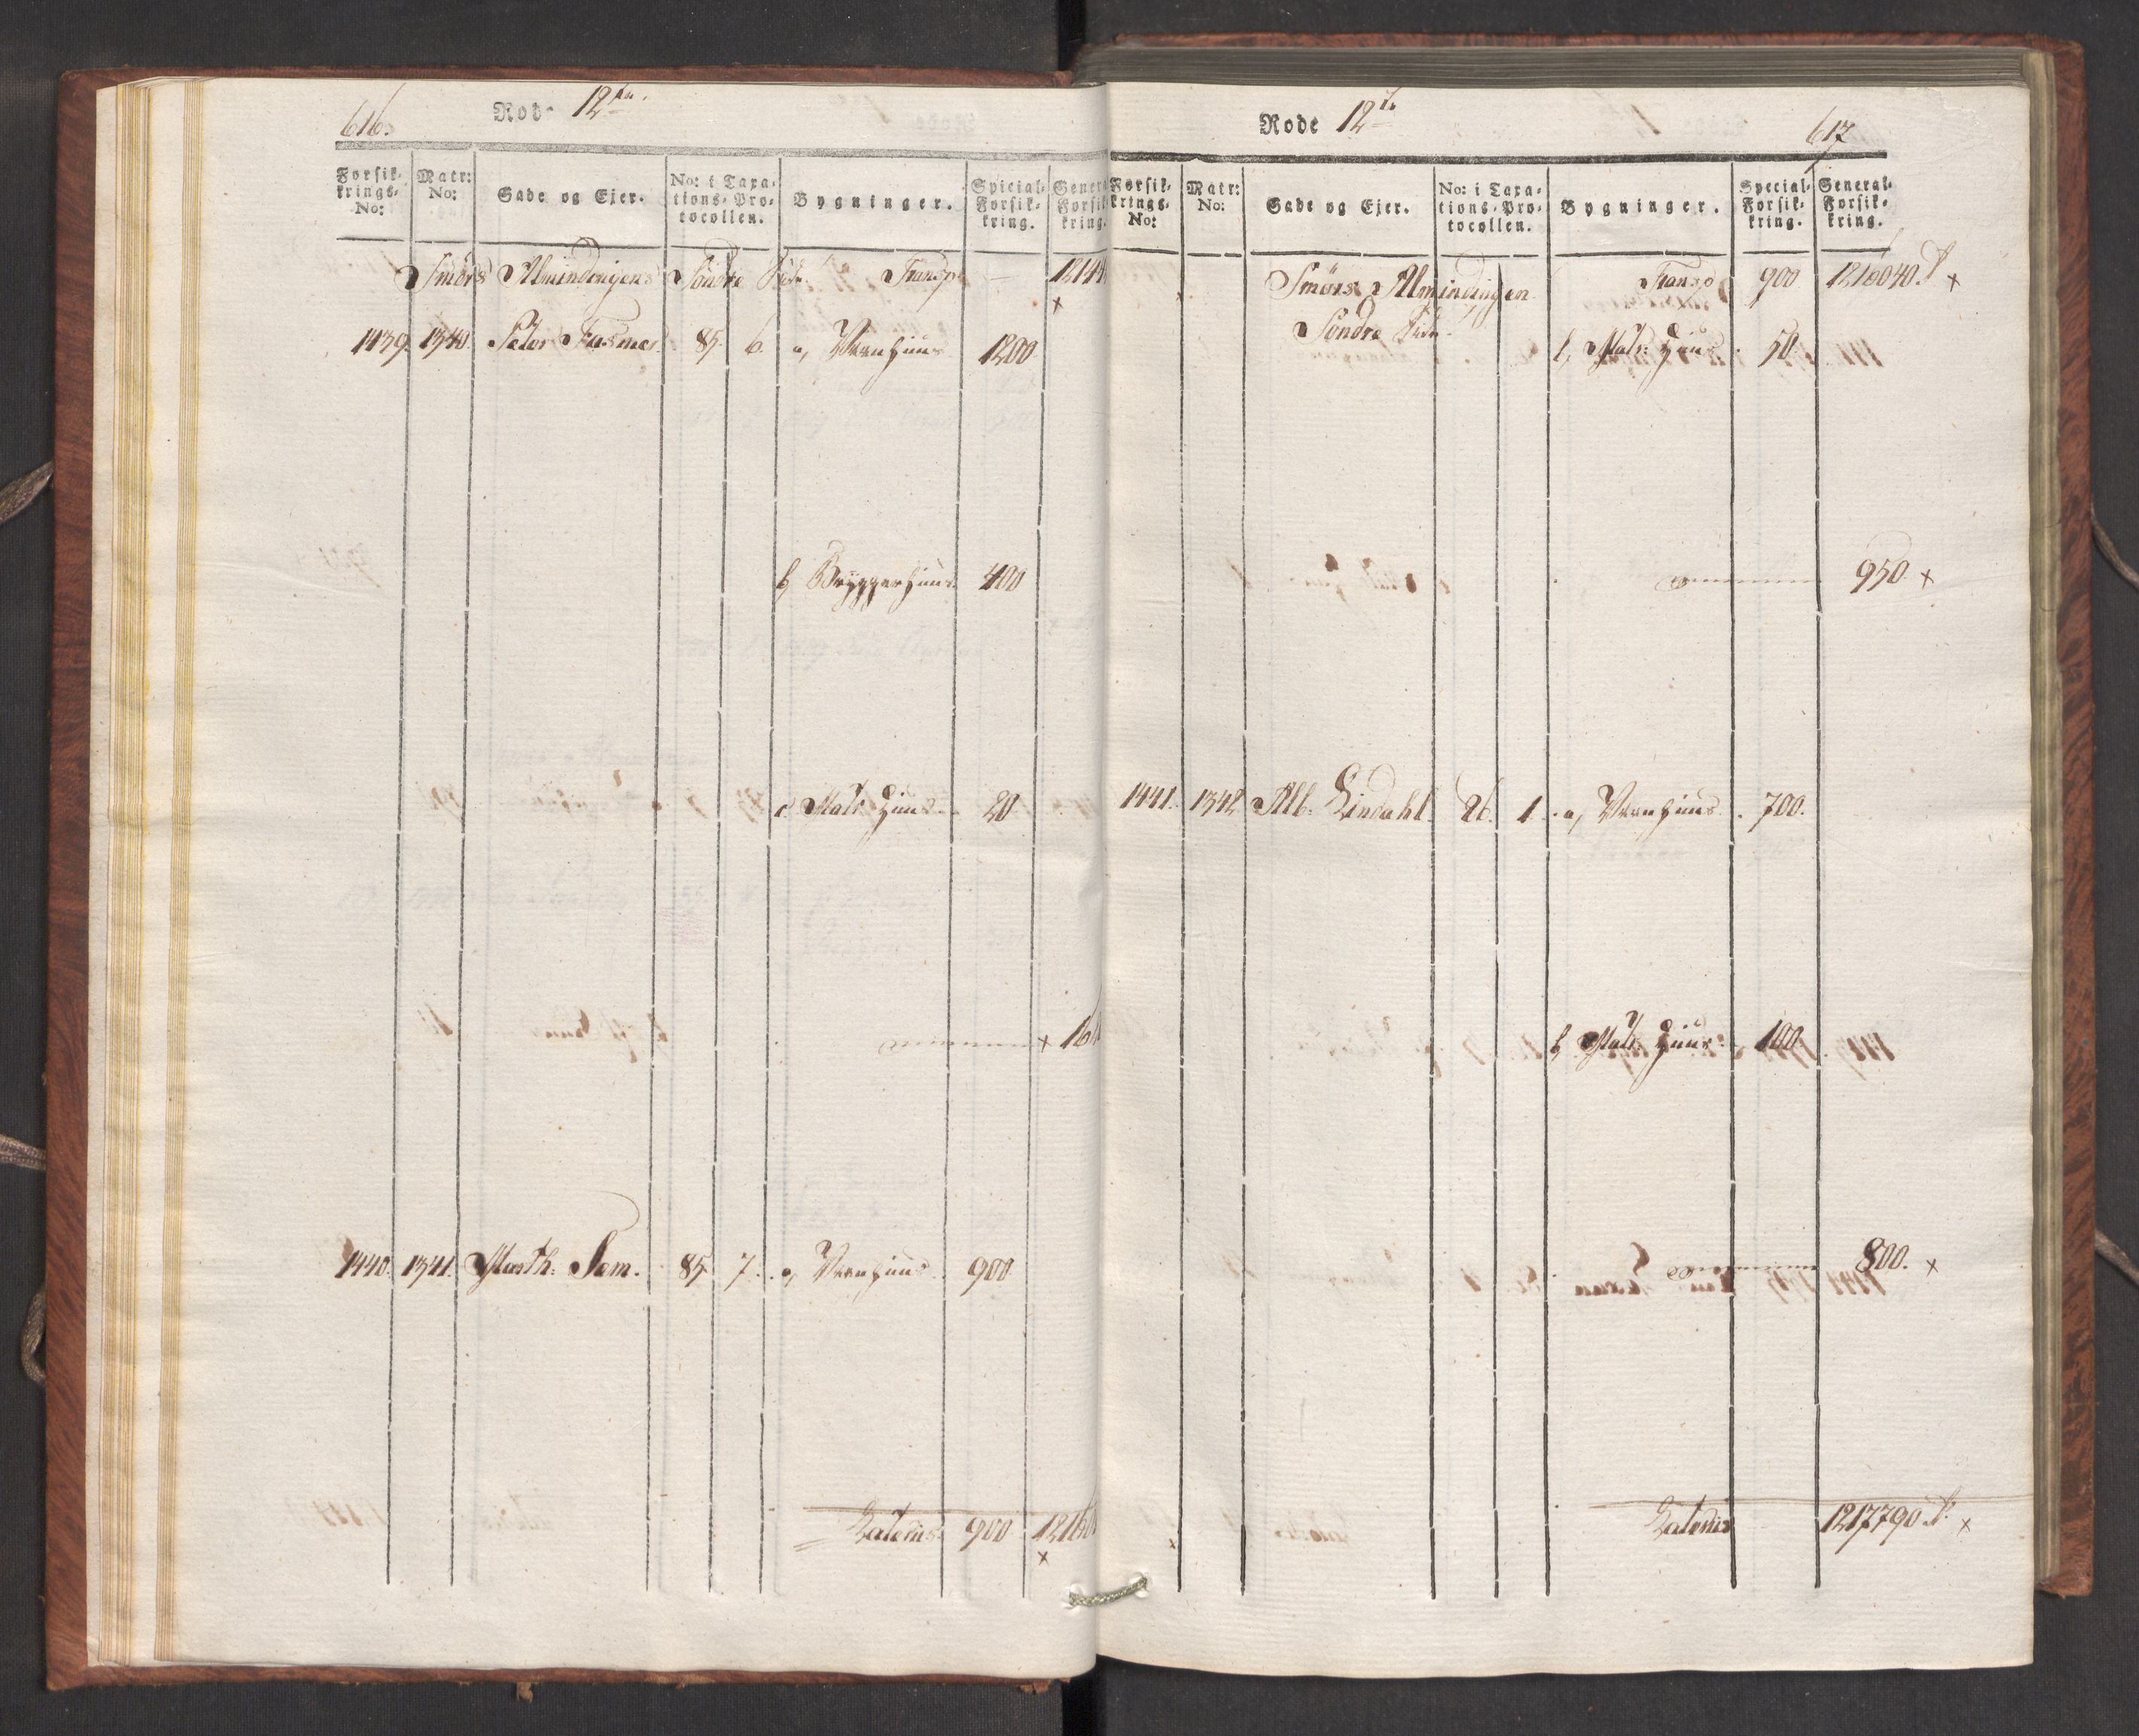 616.
Rode 12te
Forsik-
krings-
No:
Matr:
No:
Gade og Ejer.
No: i Taxa-
tions-Pro-
tocollen.
Bygninger.
Spicial-
Forsik-
kring.
Gener
Forsik
kring.
Smörs Almindingen Söndre Side Transp — 12144
1439. 1340. Peter Fasmer. 85. 6. a, Vaanhuus 1200.
b, Bryggerhuus 400
c. Matr: Huus 20
16
1440. 1341. Marth: Sem. 85. 7. a, Vaanhuus 900
Lateris 900 12160
Rode 12te
617
Forsik-
krings-
No:
Matr:
No:
Gade og Ejer.
No: i Taxa-
tions-Pro-
tocollen.
Bygninger.
Special-
Forsik-
kring.
General-
Forsik-
kring.
Smörs Almindingen Transp 900 1216040.
Söndre Side
b, Matr: Huus 50.
950.
1441. 1342. Alb. Lindahl. 86. 1. a, Vaanhuus 700.
b, Matr: Huus 100.
800.
Lateris 1217790